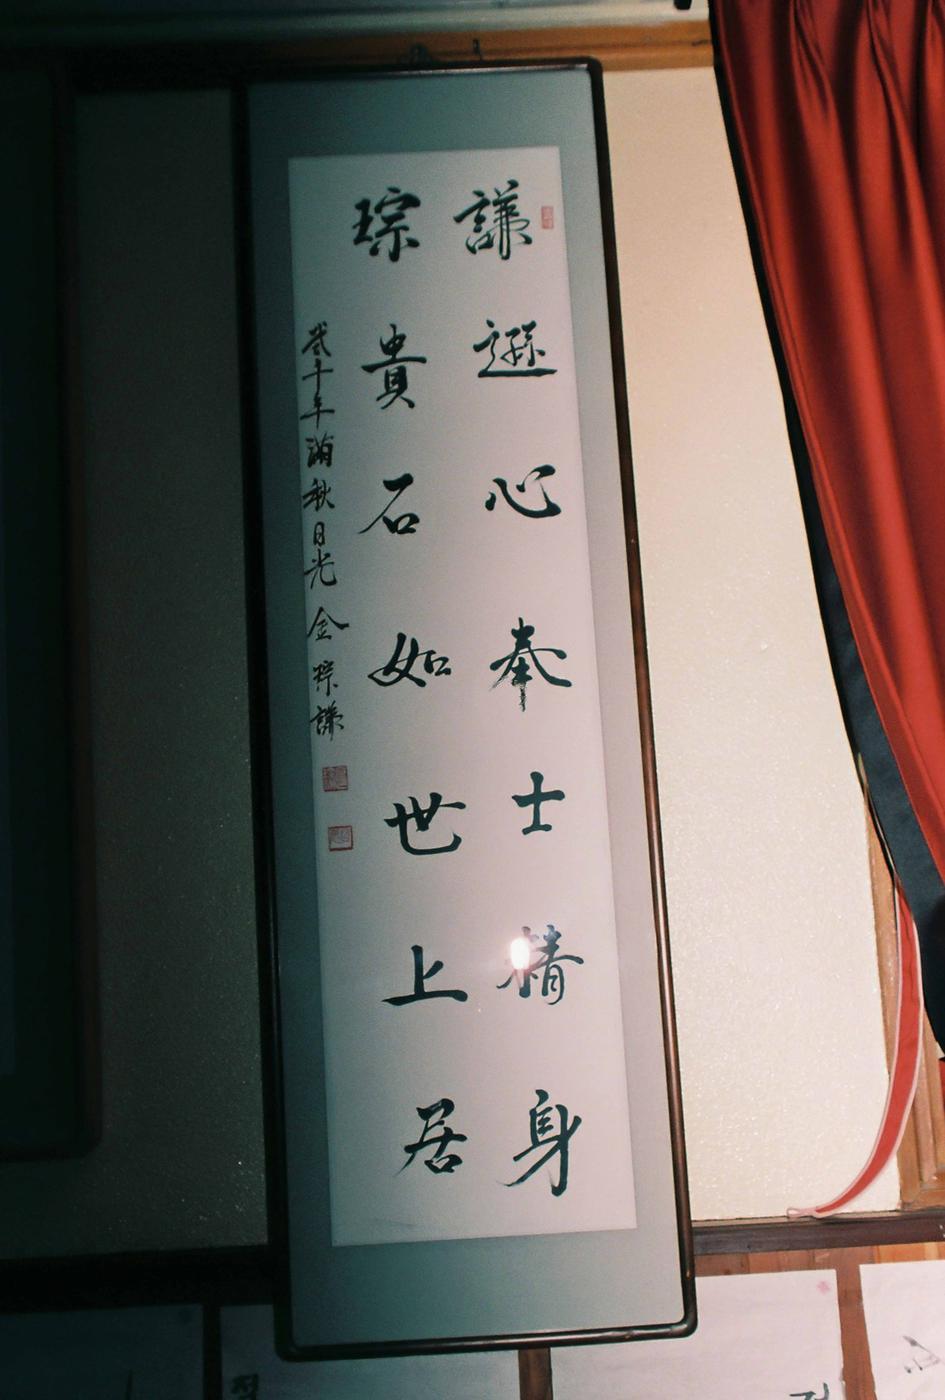 謙遜心奉士精身
琮貴石如世上居
貳千年滿秋日光 金琮謙